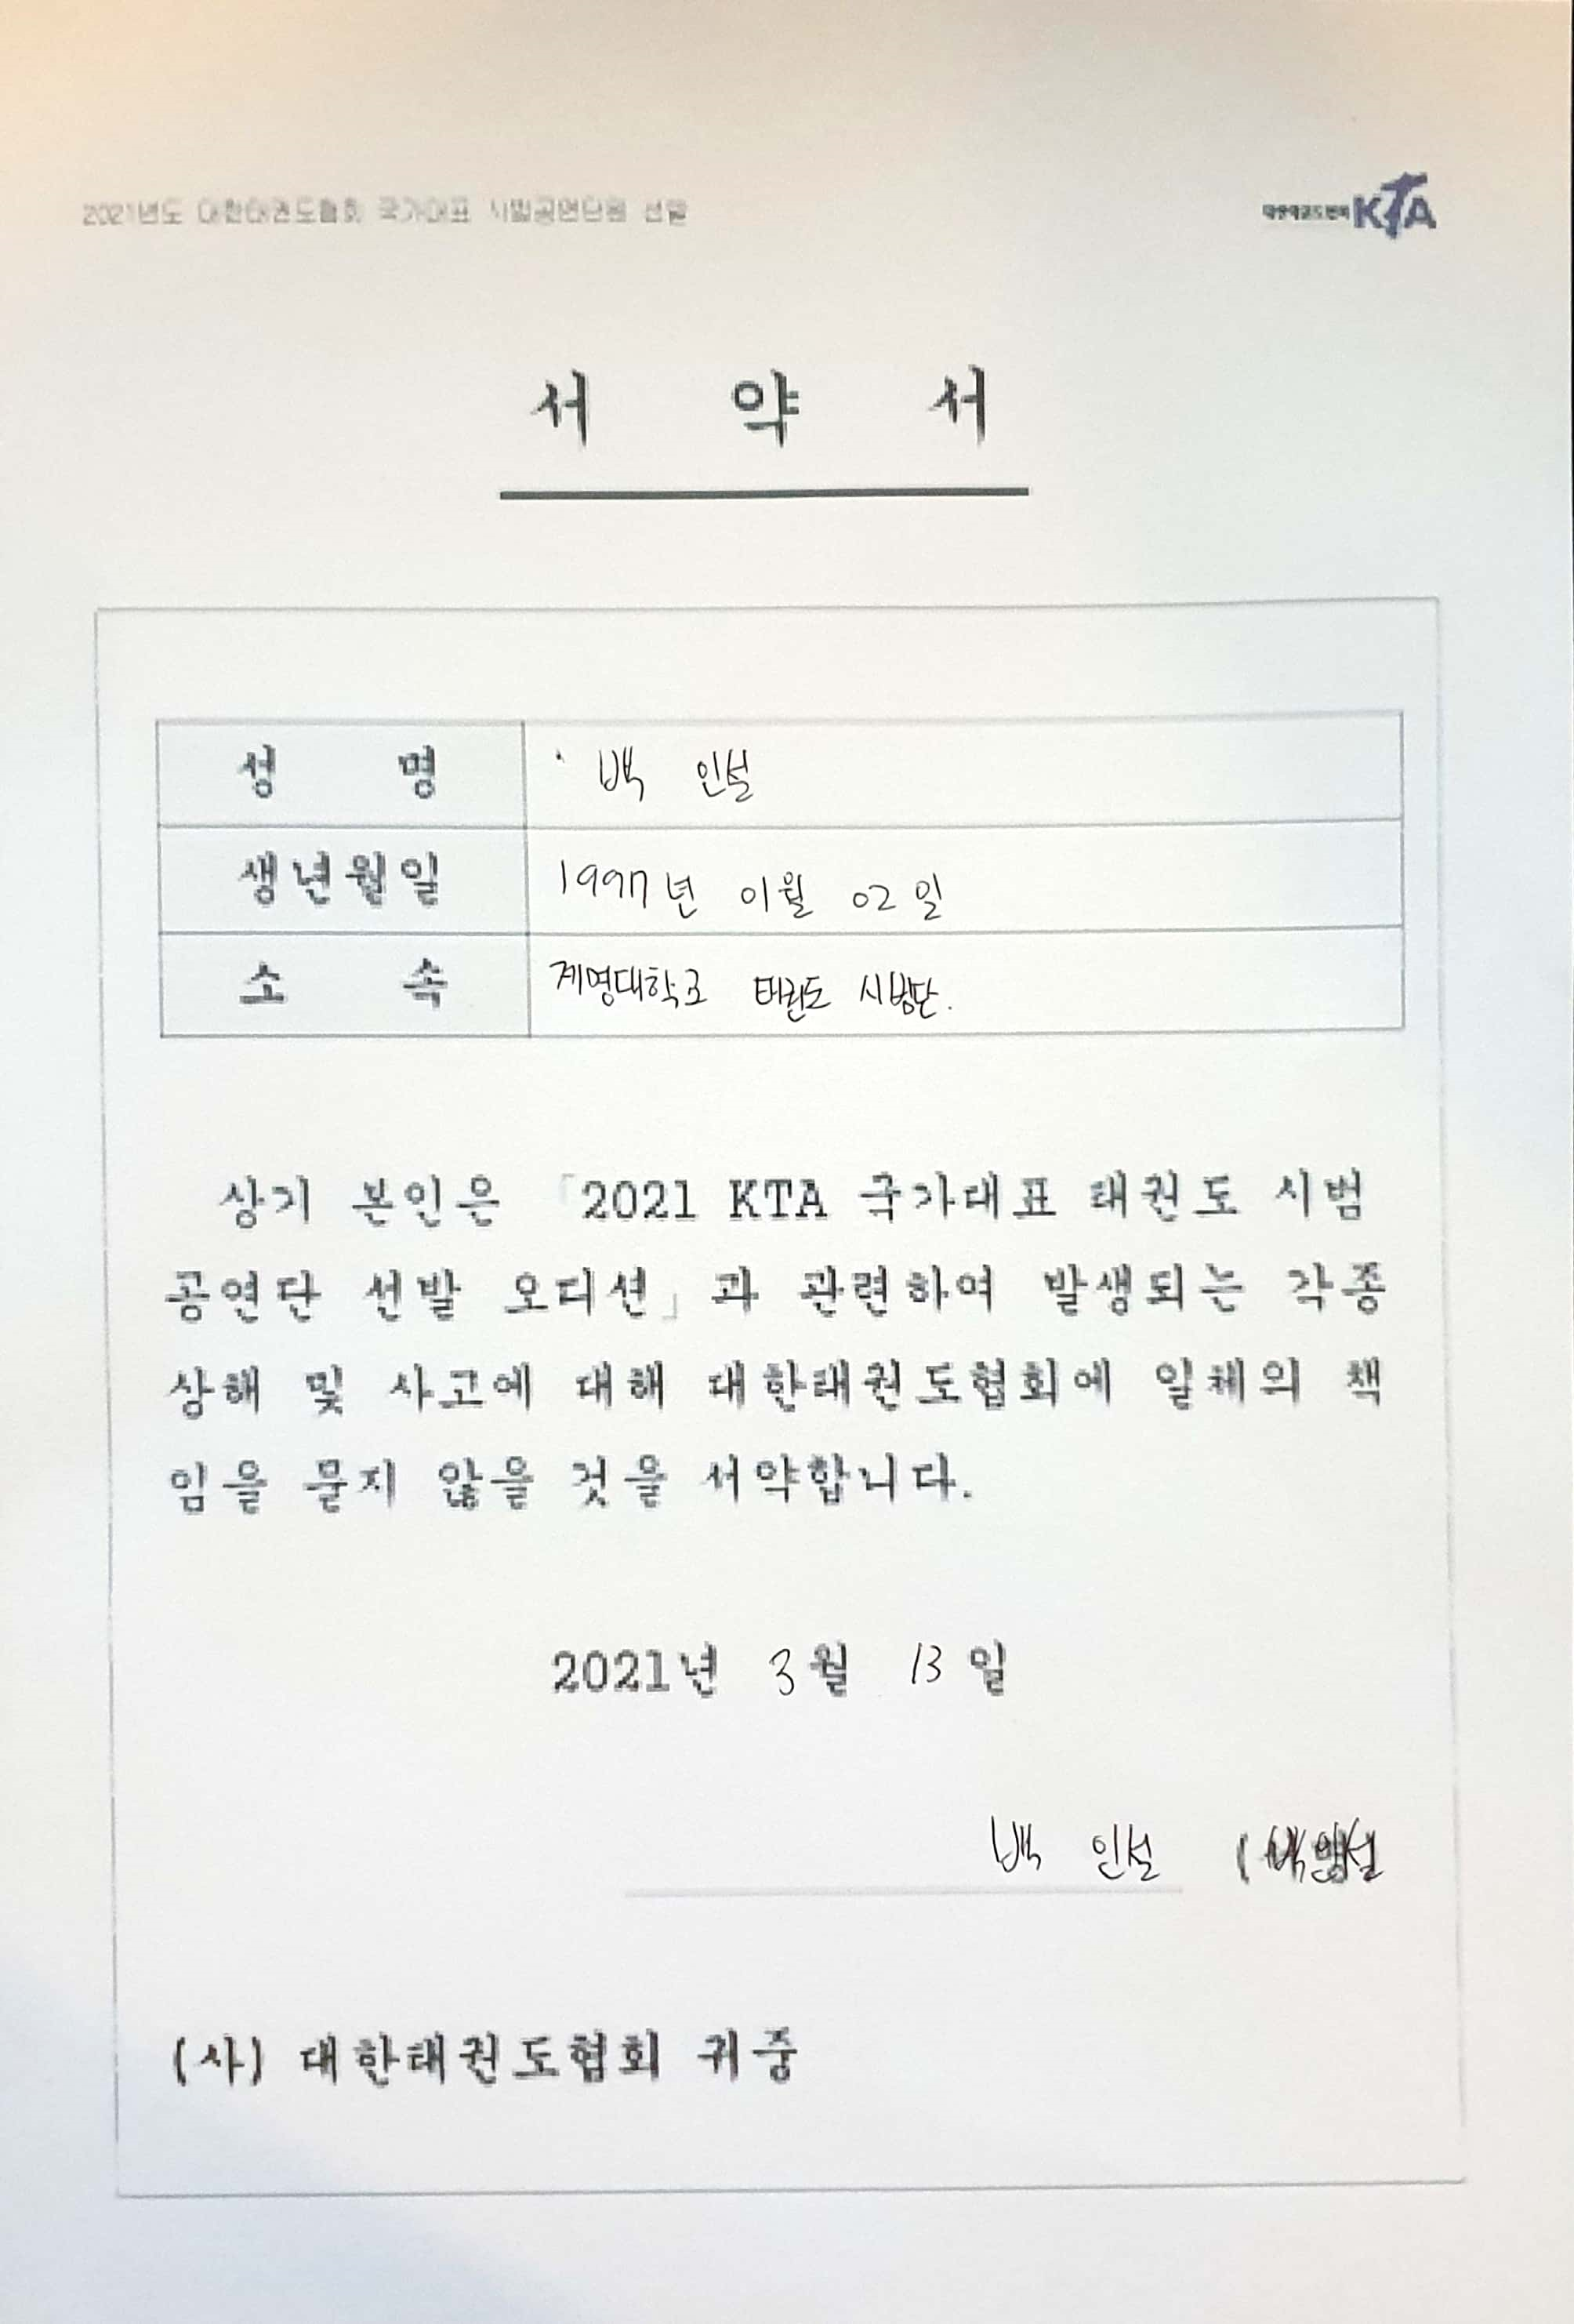 2021년도 대한태권도협회 국가대표 시범공연단원 선발
대한태권도협회 KTA
서 약 서
성 명 백 인설
생년월일 1997년 01월 02일
소 속 계명대학교 태권도 시범단.
상기 본인은 「2021 KTA 국가대표 태권도 시범
공연단 선발 오디션」과 관련하여 발생되는 각종
상해 및 사고에 대해 대한태권도협회에 일체의 책
임을 묻지 않을 것을 서약합니다.
2021년 3월 13일
백 인설 (
(사) 대한태권도협회 귀중